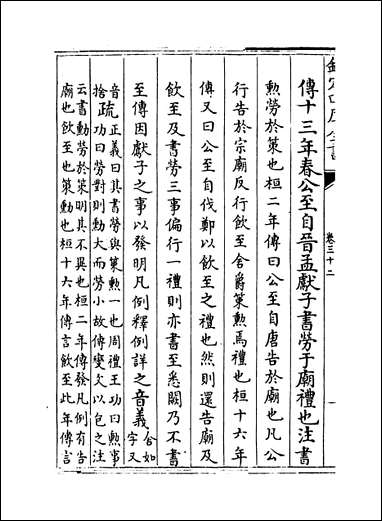 欽定四庫全書
卷三十二
傳十三年春公至自晉孟獻子書勞于廟禮也注書
勲勞於策也桓二年傳曰公至自唐告於廟也凡公
行告於宗廟反行飲至舍爵策勲焉禮也桓十六年
傳又曰公至自伐鄭以飲至之禮也然則還告廟及
飲至及書勞三事偏行一禮則亦書至悉闕乃不書
至傳因獻子之事以發明凡例釋例詳之音義舍如字又
音捨疏正義曰其書勞與策勲一也周禮王功曰勲事
功曰勞對則勲大而勞小故傳變文以包之注
云書勲勞於策明其不異也桓二年傳發凡例有告
廟也飲至也策勲也桓十六年傳言飲至此年傳言